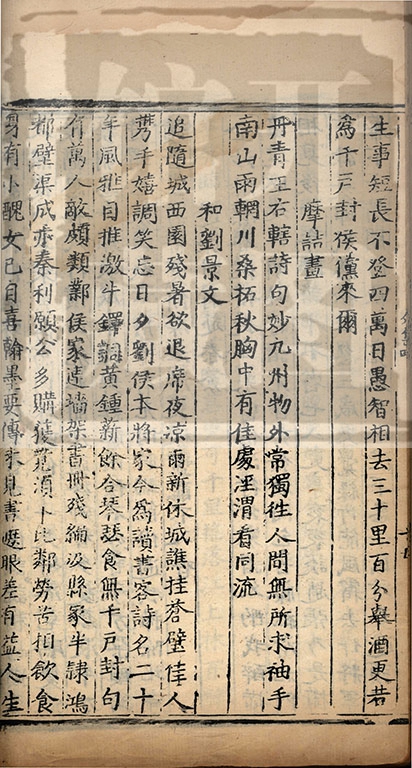 生事短長不登四萬日愚智相去三十里百分舉酒更若
爲千戶封侯儻來爾
摩詰畫
丹青王右轄詩句妙九州物外常獨往人間無所求袖手
南山雨輞川桑柘秋胸中有佳處涇渭看同流
和劉景文
追隨城西園殘暑欲退席夜凉雨新休城譙挂蒼璧佳人
携手嬉調笑忘日夕劉侯本將家今爲讀書客詩名二十
年風雅自推激牛鐸調黃鍾薪餘合琴瑟食無千戶封句
有萬人敵頗類鄴侯家連墻架書冊殘編汲縣冢半隷鴻
都壁渠成亦秦利願公多購獲覓須卜比鄰勞苦相飲食
有小醜女已自喜翰墨要傳未見書遮眼差有益人生